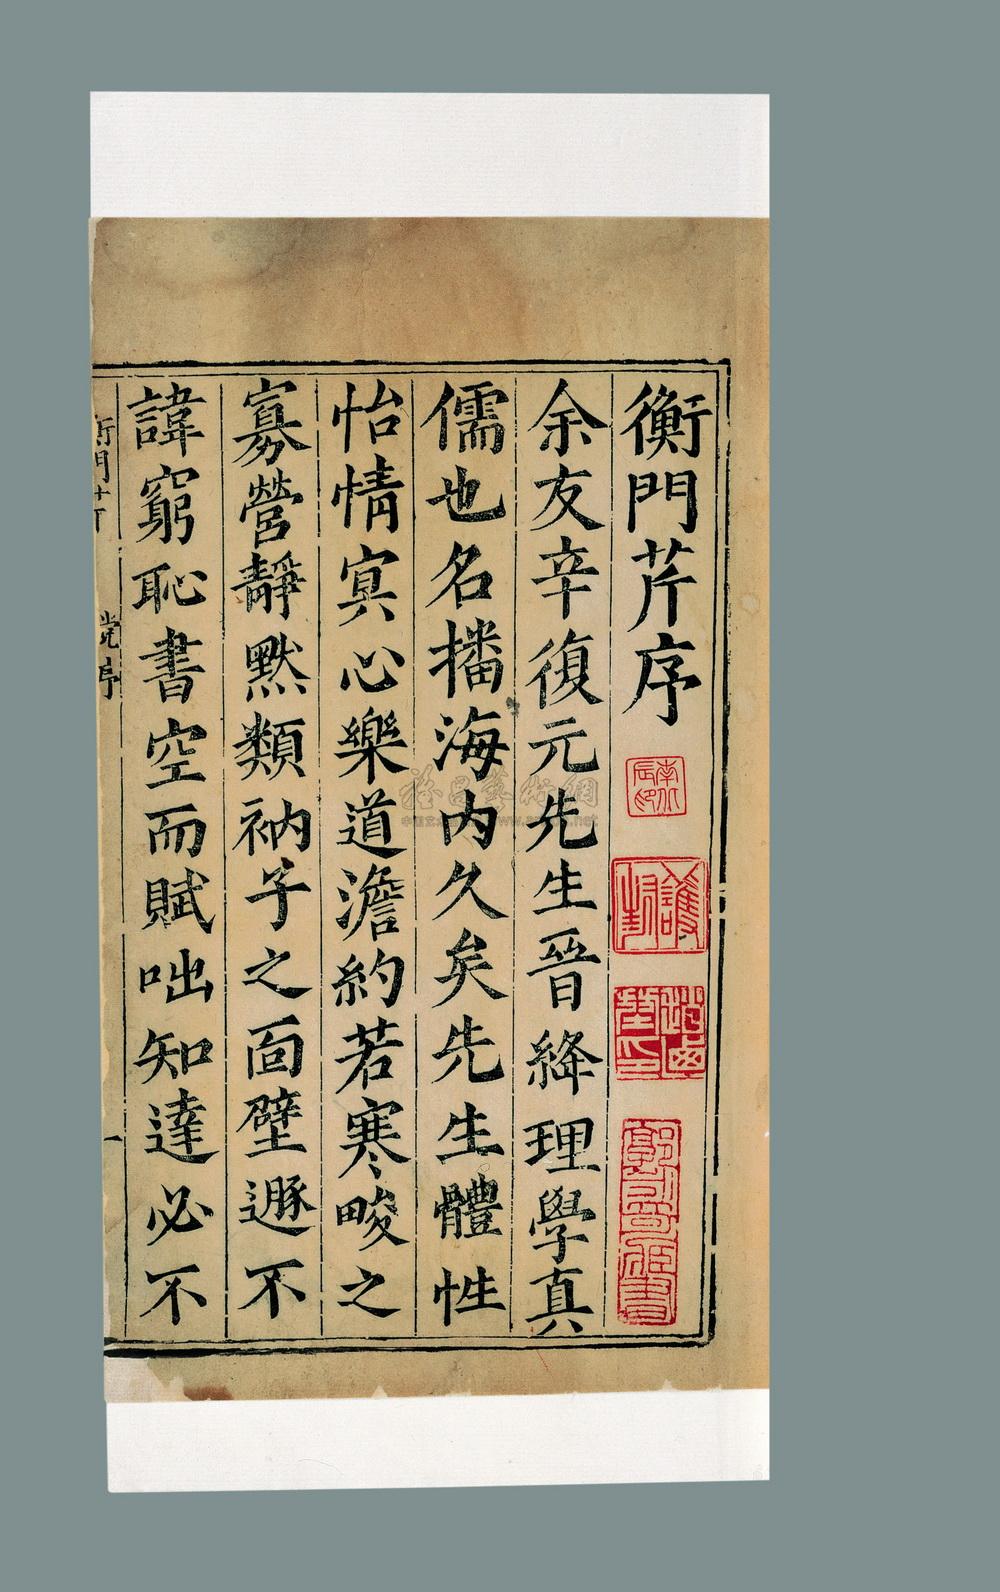 衡門芹序
余友辛復元先生晉絳理學真
儒也名播海内久矣先生體性
怡情寞心樂道澹約若寒畯之
寡營靜默類衲子之面壁遯不
諱窮恥書空而賦咄知達必不
衡門芹
党序
一